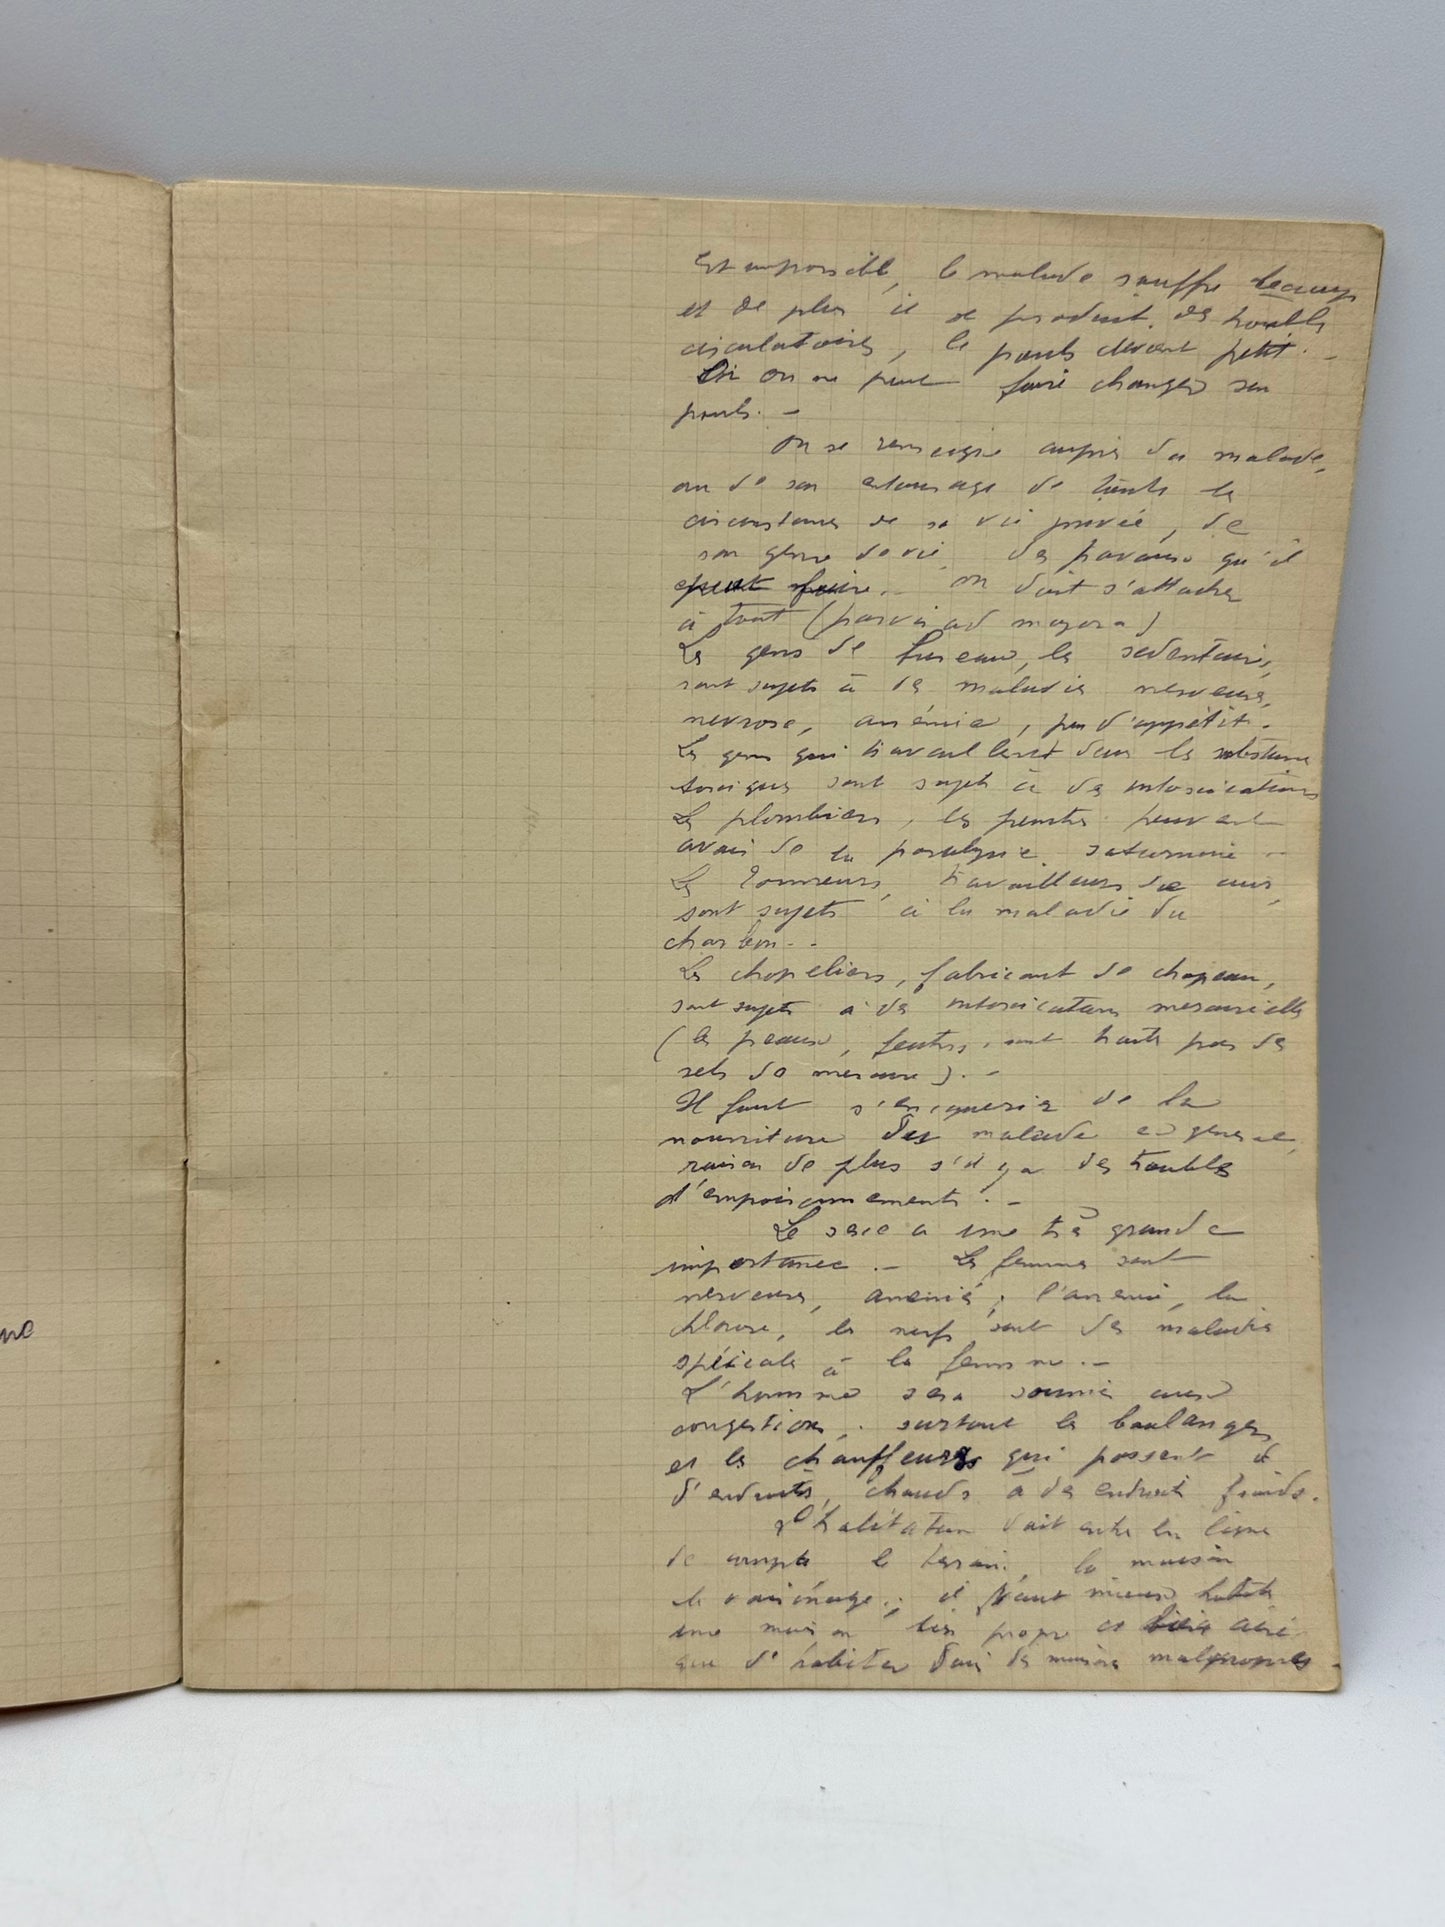 est impossible, le malade souffre beaucoup
et de plus il se produit des troubles
circulatoires, le pouls devient petit. -
Si on ne peut faire changer son
pouls. -
On se renseigne auprès du malade,
ou de son entourage de toutes les
circonstances de sa vie privée, de
son genre de vie, des travaux qu'il
peut faire. - On doit s'attacher
à tout (parva ad majora)
Les gens de bureau, les sédentaires,
sont sujets à des maladies nerveuses,
nevrose, anémie, peu d'appétit.
Les gens qui travaillent dans les substances
toxiques sont sujets à des intoxications
Les plombiers, les peintres peuvent
avoir de la paralysie saturnine -
Les tanneurs, travailleurs de cuir,
sont sujets à la maladie du
charbon. -
Les chapeliers, fabricant de chapeau,
sont sujets à des intoxications mercurielles
(les peaux, feutres, sont traités par des
sels de mercure). -
Il faut s'enquerir de la
nourriture des malade en general,
raison de plus s'il y a des troubles
d'empoisonnements. -
Le sexe a une très grande
importance. - Les femmes sont
nerveuses, anemié, l'anemie, la
chlorose, les nerfs sont des maladies
spéciales à la femme. -
L'homme sera soumis aux
congestions, surtout les boulangers
et les chauffeurs qui passent
d'endroits chauds à des endroits froids.
L'habitation doit entrer en ligne
de compte le terrain, la maison
le voisinage.; il vaut mieux habiter
une maison très propre et bien aéré
que d'habiter dans des maisons malpropres -